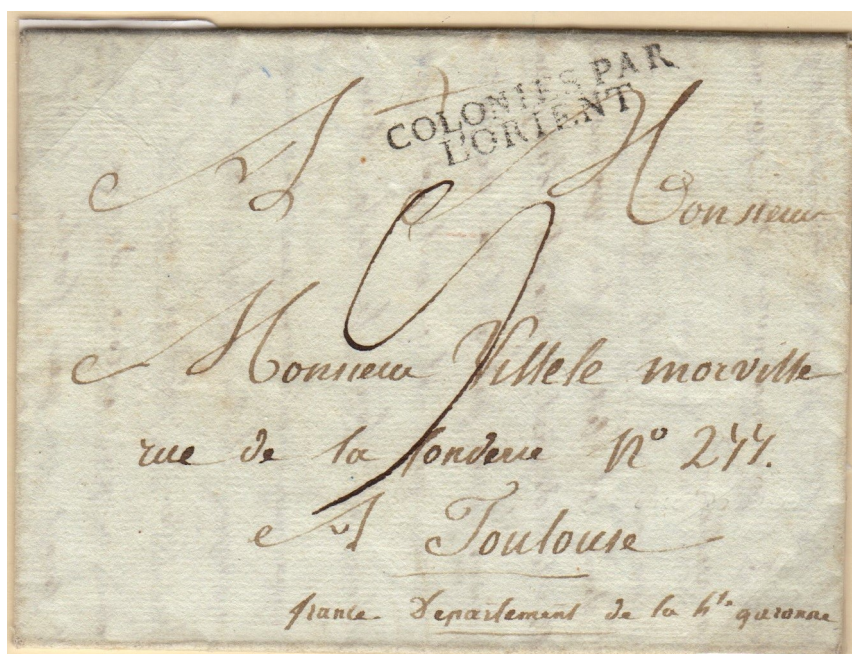 COLONIES PAR
L'ORIENT
A Monsieur
9
Monsieur Villele morville
rue de la fonderie N° 244.
A Toulouse
france Departement de la hte garonne